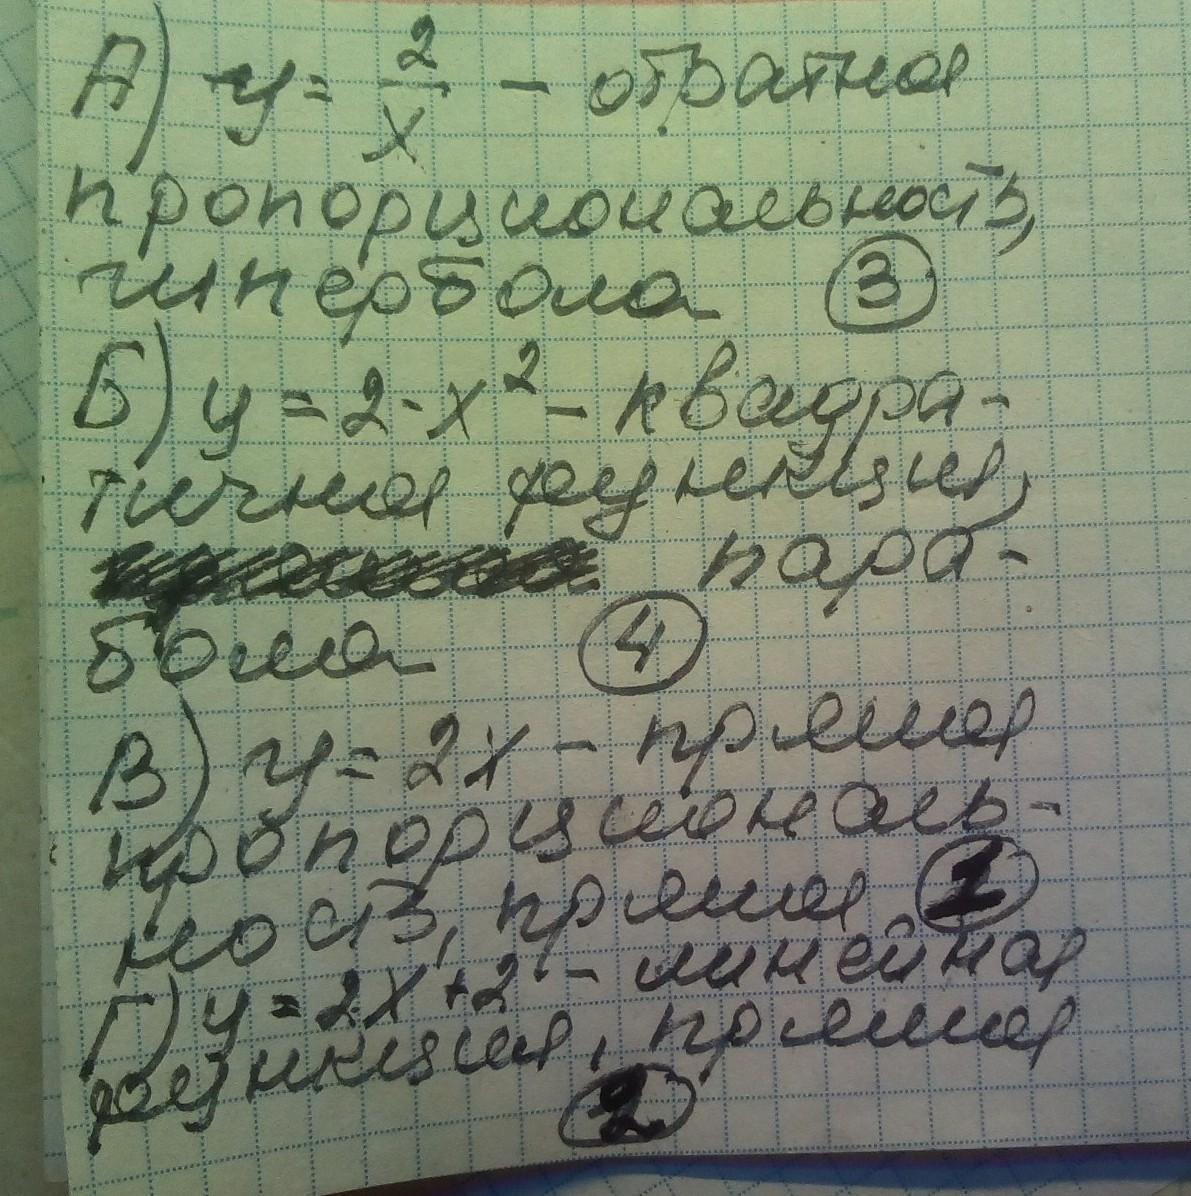 А) y = 2/x - обратная
пропорциональность,
гипербола ③
Б) y = 2 - x² - квадра-
тичная функция,
пара-
бола ④
В) y = 2x - прямая
пропорциональ-
ность, прямая ①
Г) y = 2x + 2 - линейная
функция, прямая
②